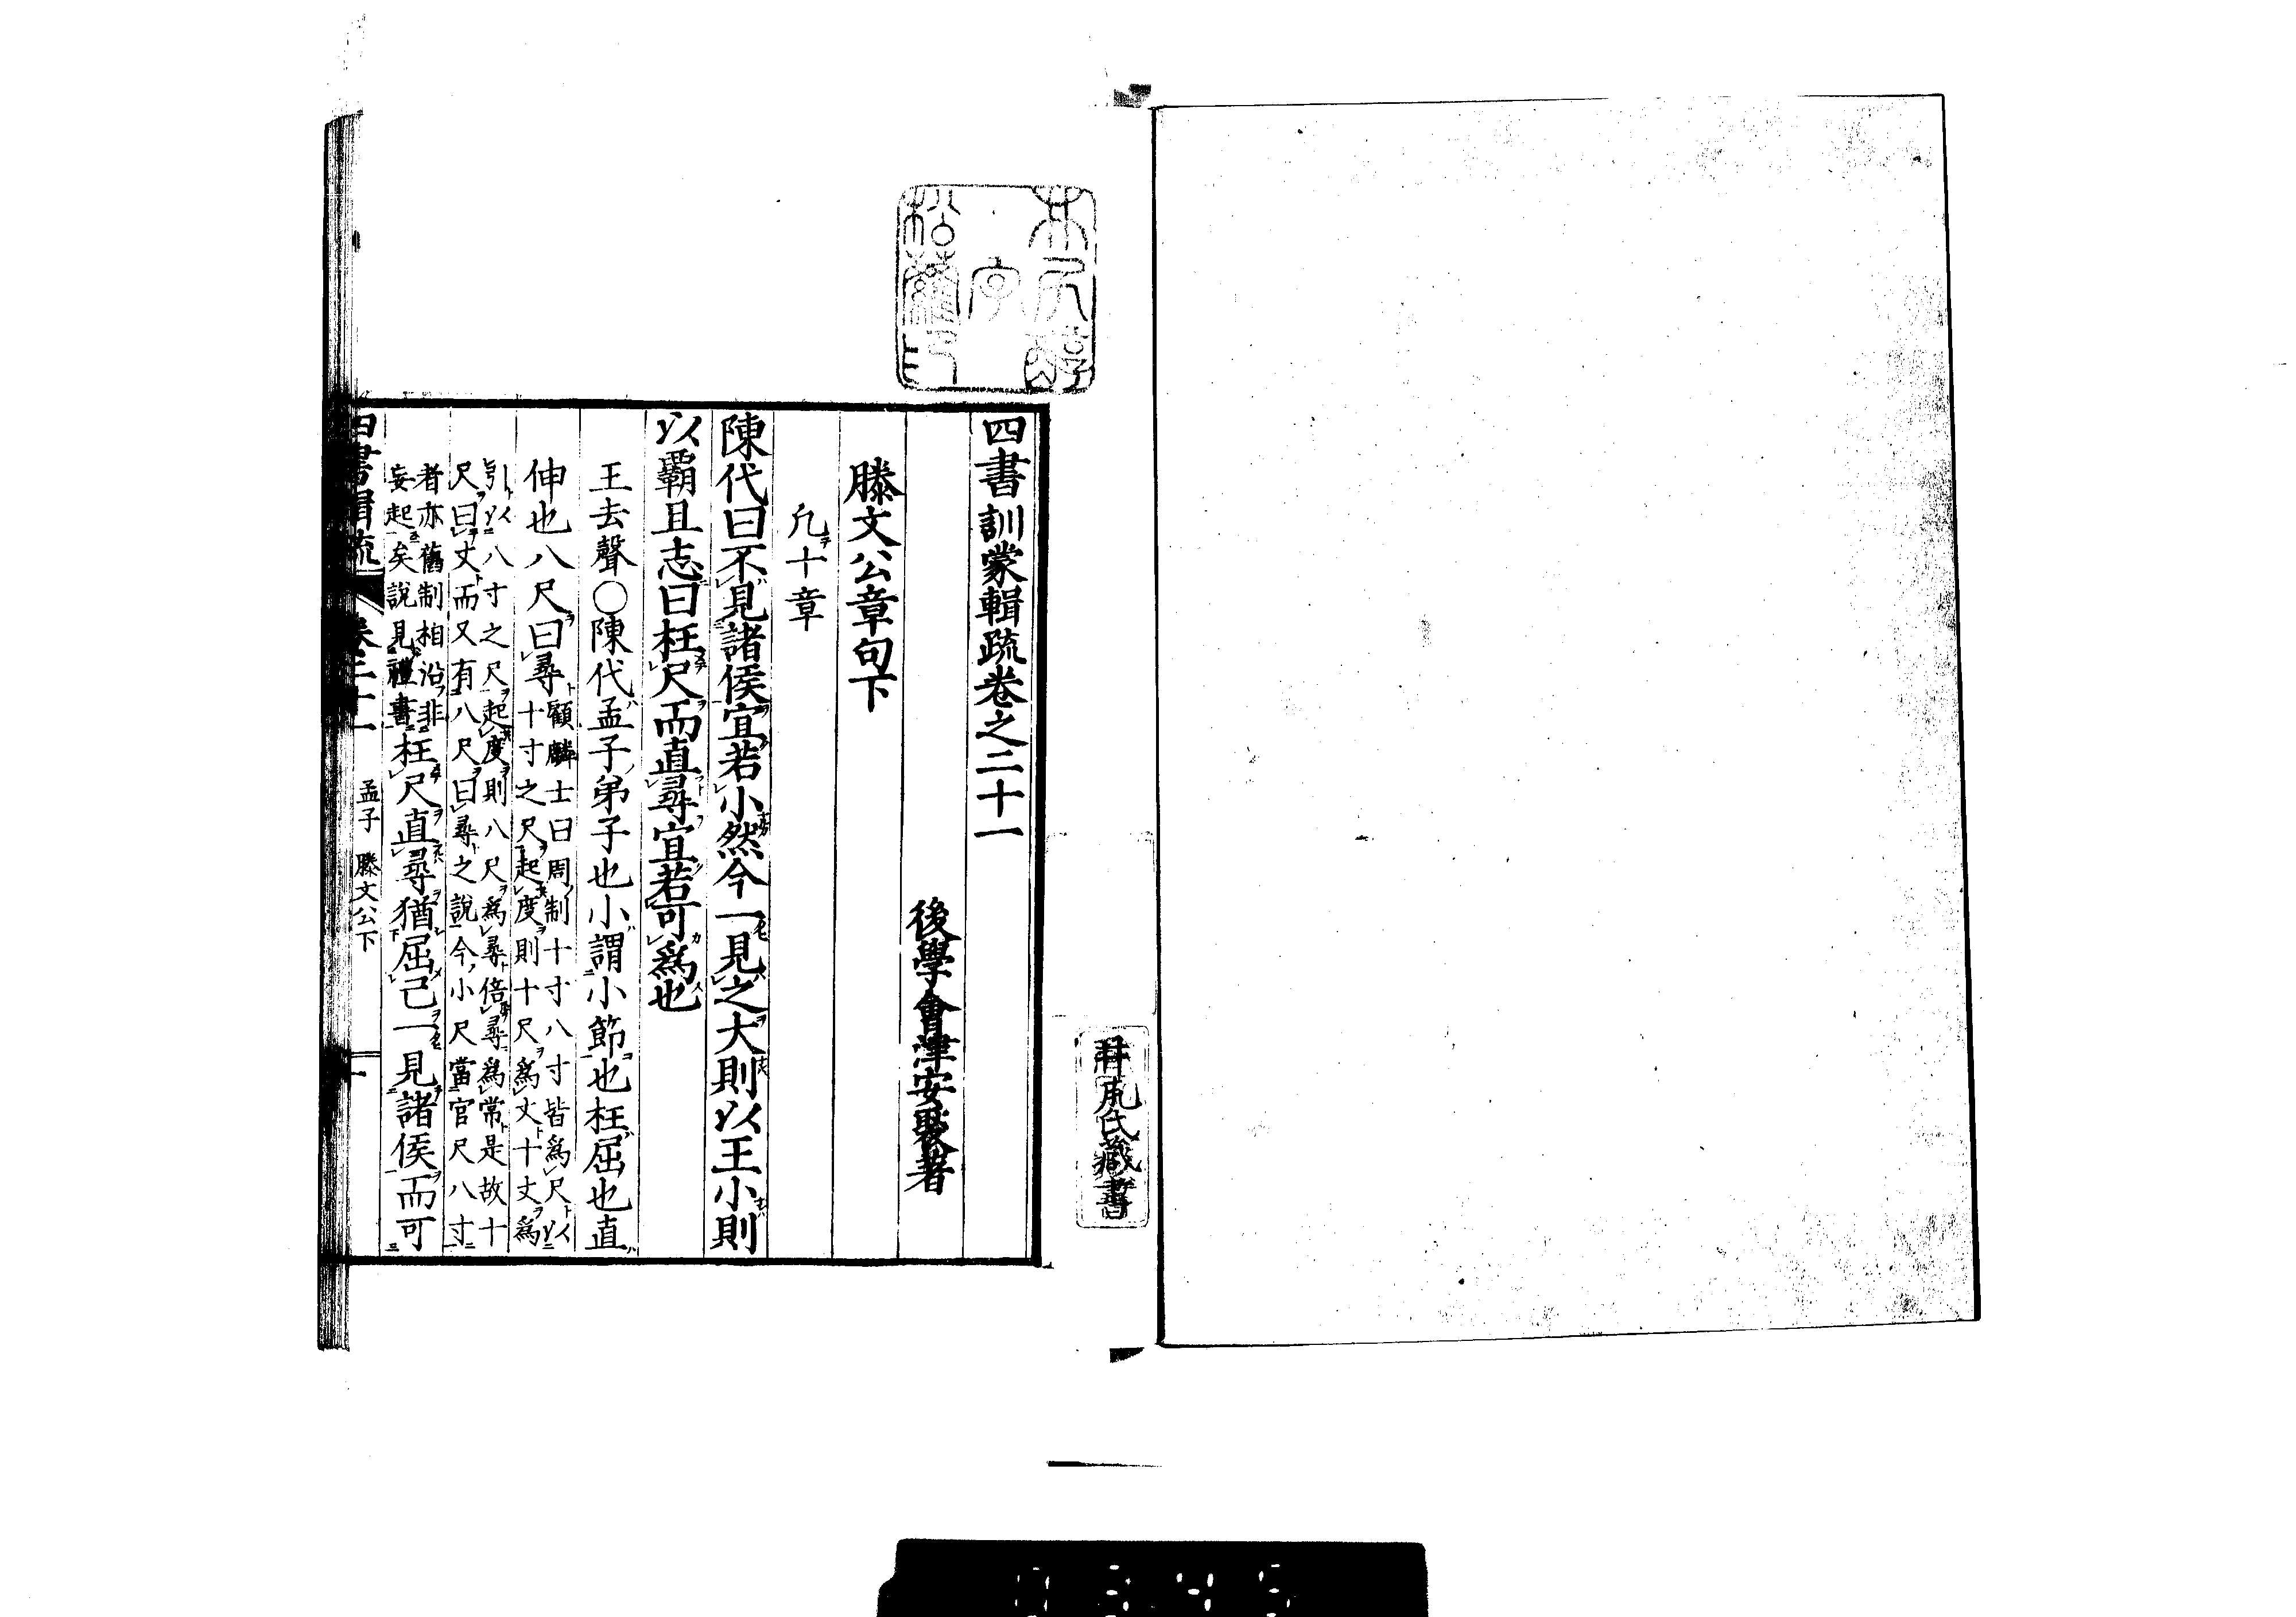 四書訓蒙輯疏卷之二十一
後學會津安褧著
滕文公章句下
凡十章
陳代曰不見諸侯宜若小然今一見之大則以王小則
以霸且志曰枉尺而直尋宜若可爲也
王去聲○陳代孟子弟子也小謂小節也枉屈也直
伸也八尺曰尋
顧麟士曰周制十寸八寸皆爲尺以
十寸之尺起度則十尺爲丈十丈爲
引以八寸之尺起度則八尺爲尋倍尋爲常是故十
尺曰丈而又有八尺曰尋之說今小尺當官尺八寸
者亦舊制相沿非
妄起矣說見禮書
枉尺直尋猶屈己一見諸侯而可
四書輯疏 卷二十一 孟子 滕文公下 一
氏藏書